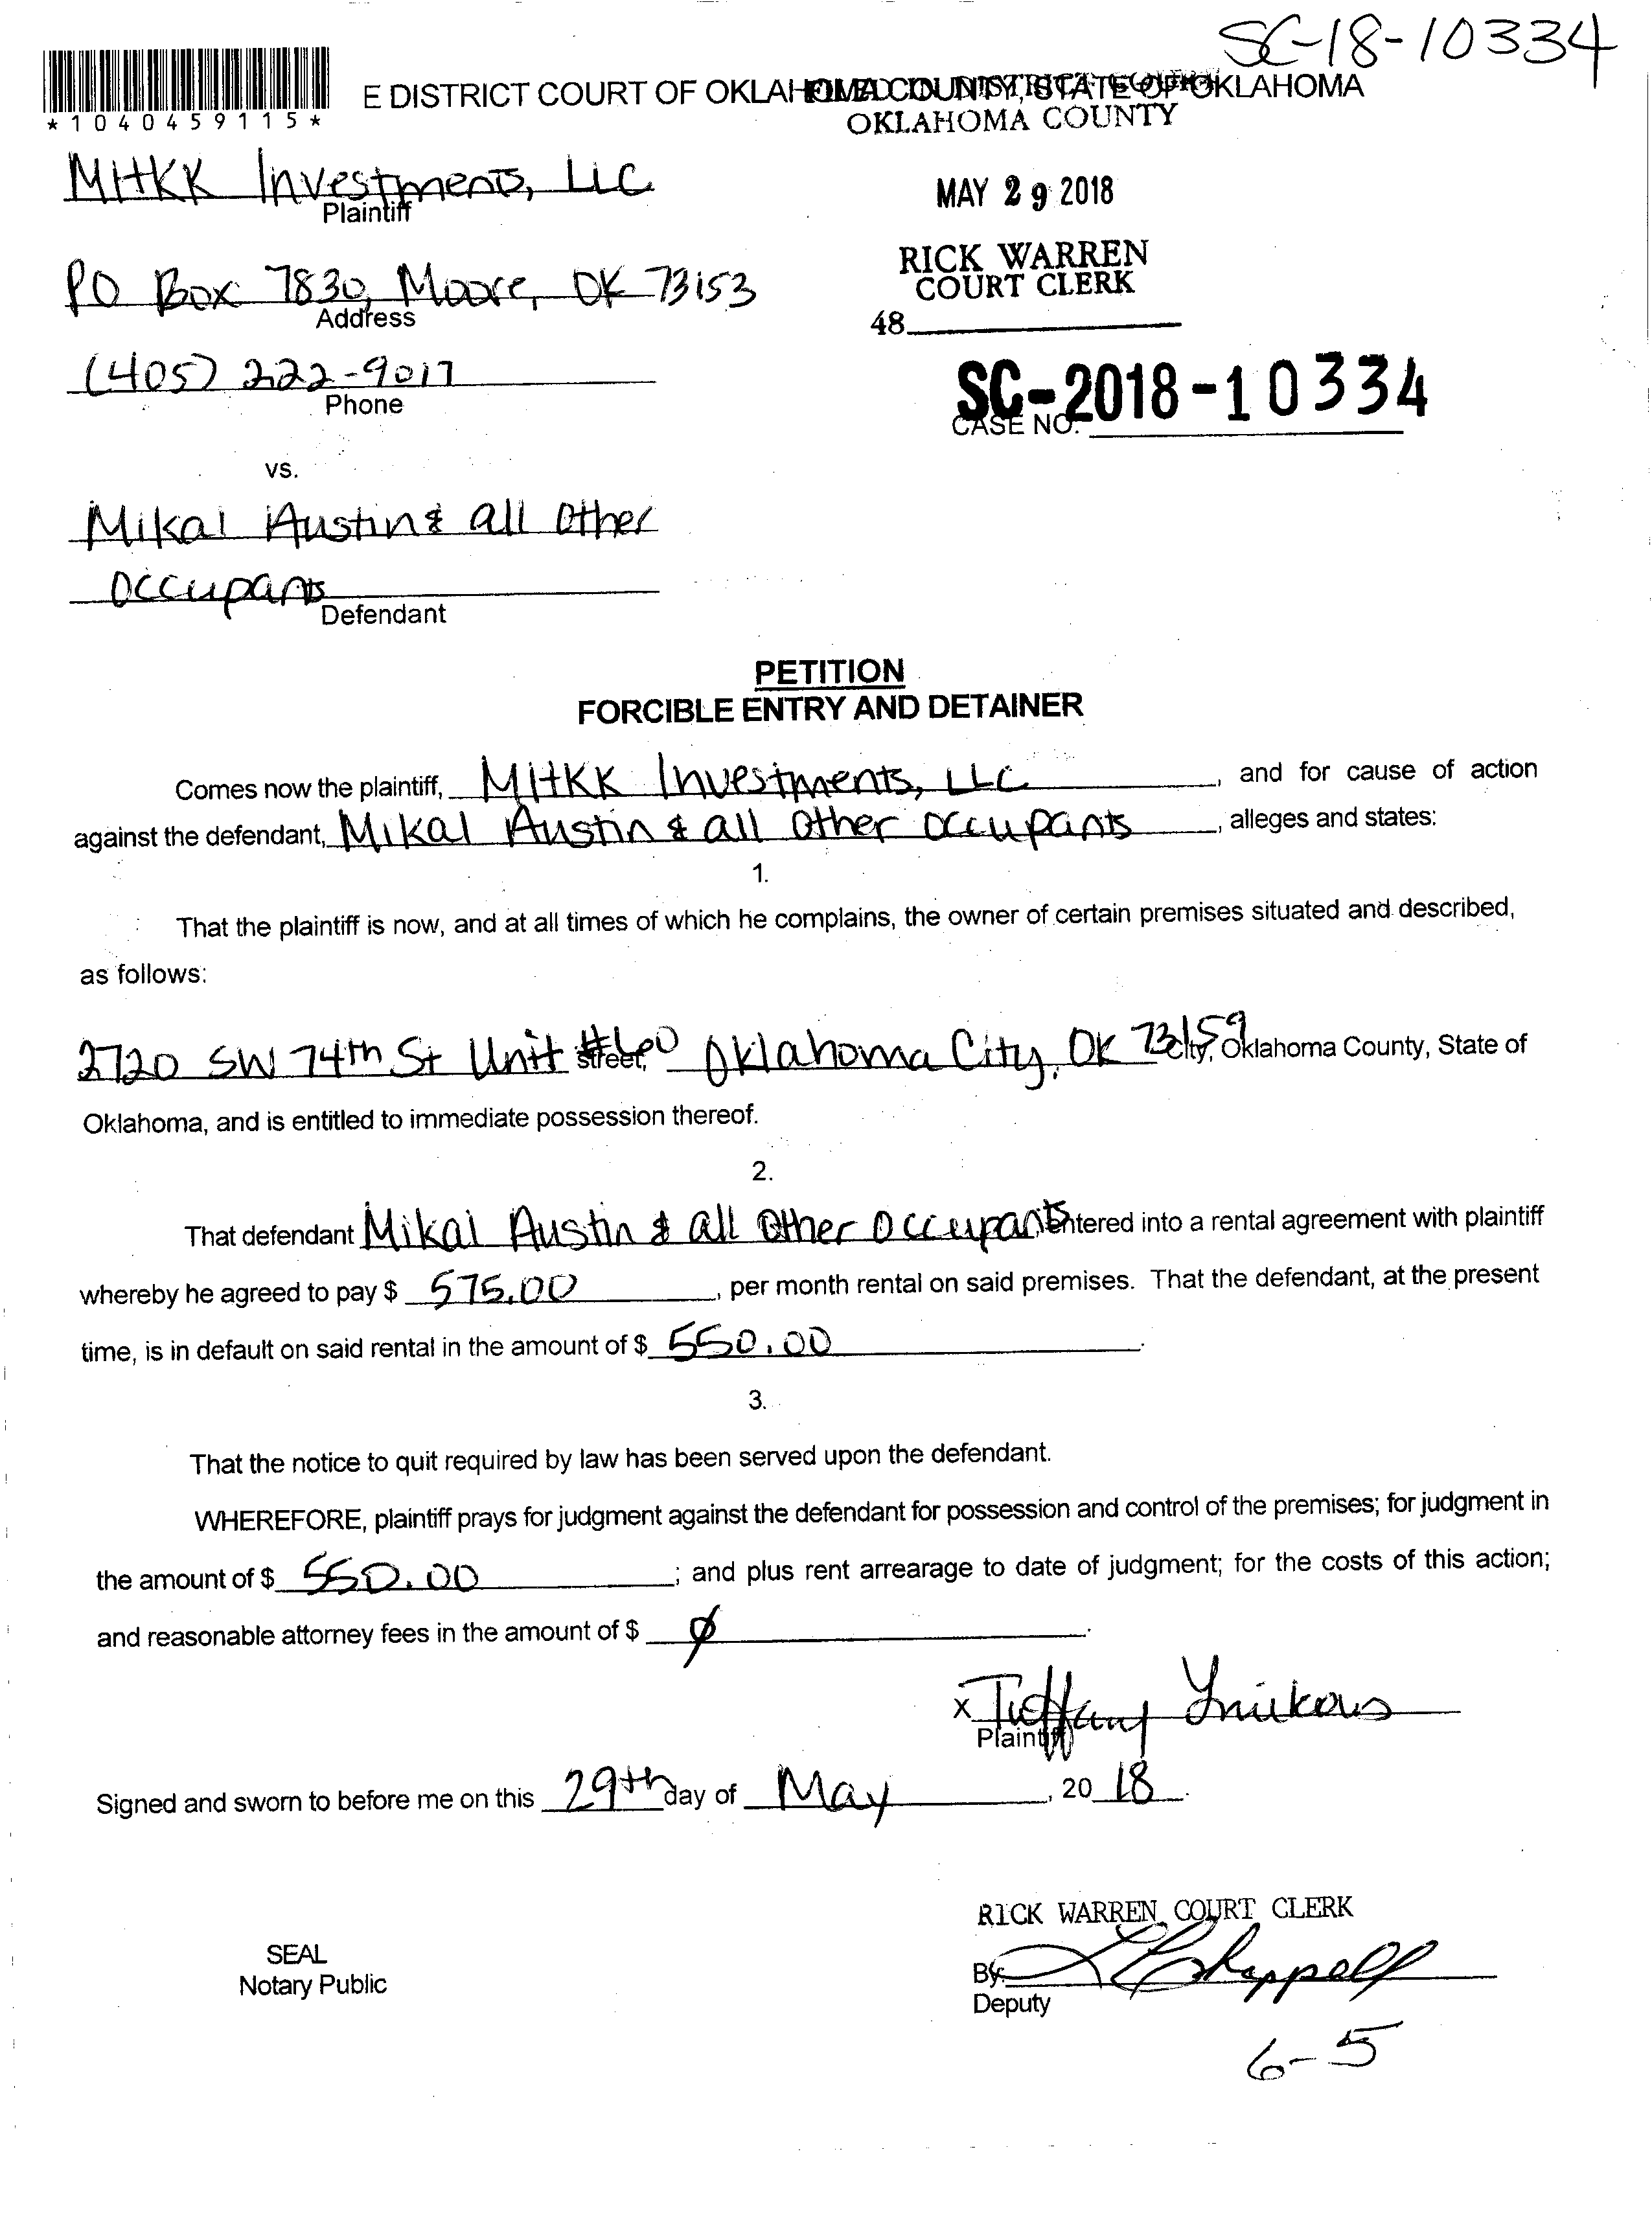 SC-18-10334
E DISTRICT COURT OF OKLAHOMA COUNTY, STATE OF OKLAHOMA
OKLAHOMA COUNTY
*1040459115*
MHKK Investments, LLC
Plaintiff
MAY 29 2018
RICK WARREN
COURT CLERK
PO Box 7830, Moore, OK 73153
Address
48
(405) 222-9017
Phone
SC-2018-10334
CASE NO.
vs.
Mikal Austin & all other
occupants
Defendant
PETITION
FORCIBLE ENTRY AND DETAINER
Comes now the plaintiff, MHKK Investments, LLC, and for cause of action
against the defendant, Mikal Austin & all other occupants, alleges and states:
1.
That the plaintiff is now, and at all times of which he complains, the owner of certain premises situated and described,
as follows:
2720 SW 74th St Unit #60 street, Oklahoma City, OK 73159 City, Oklahoma County, State of
Oklahoma, and is entitled to immediate possession thereof.
2.
That defendant Mikal Austin & all other occupants entered into a rental agreement with plaintiff
whereby he agreed to pay $ 575.00, per month rental on said premises. That the defendant, at the present
time, is in default on said rental in the amount of $ 550.00.
3.
That the notice to quit required by law has been served upon the defendant.
WHEREFORE, plaintiff prays for judgment against the defendant for possession and control of the premises; for judgment in
the amount of $ 550.00; and plus rent arrearage to date of judgment; for the costs of this action;
and reasonable attorney fees in the amount of $ ø.
x Tiffany
Plaintiff
Signed and sworn to before me on this 29th day of May, 20 18.
RICK WARREN COURT CLERK
SEAL
Notary Public
By:
Deputy
6-5